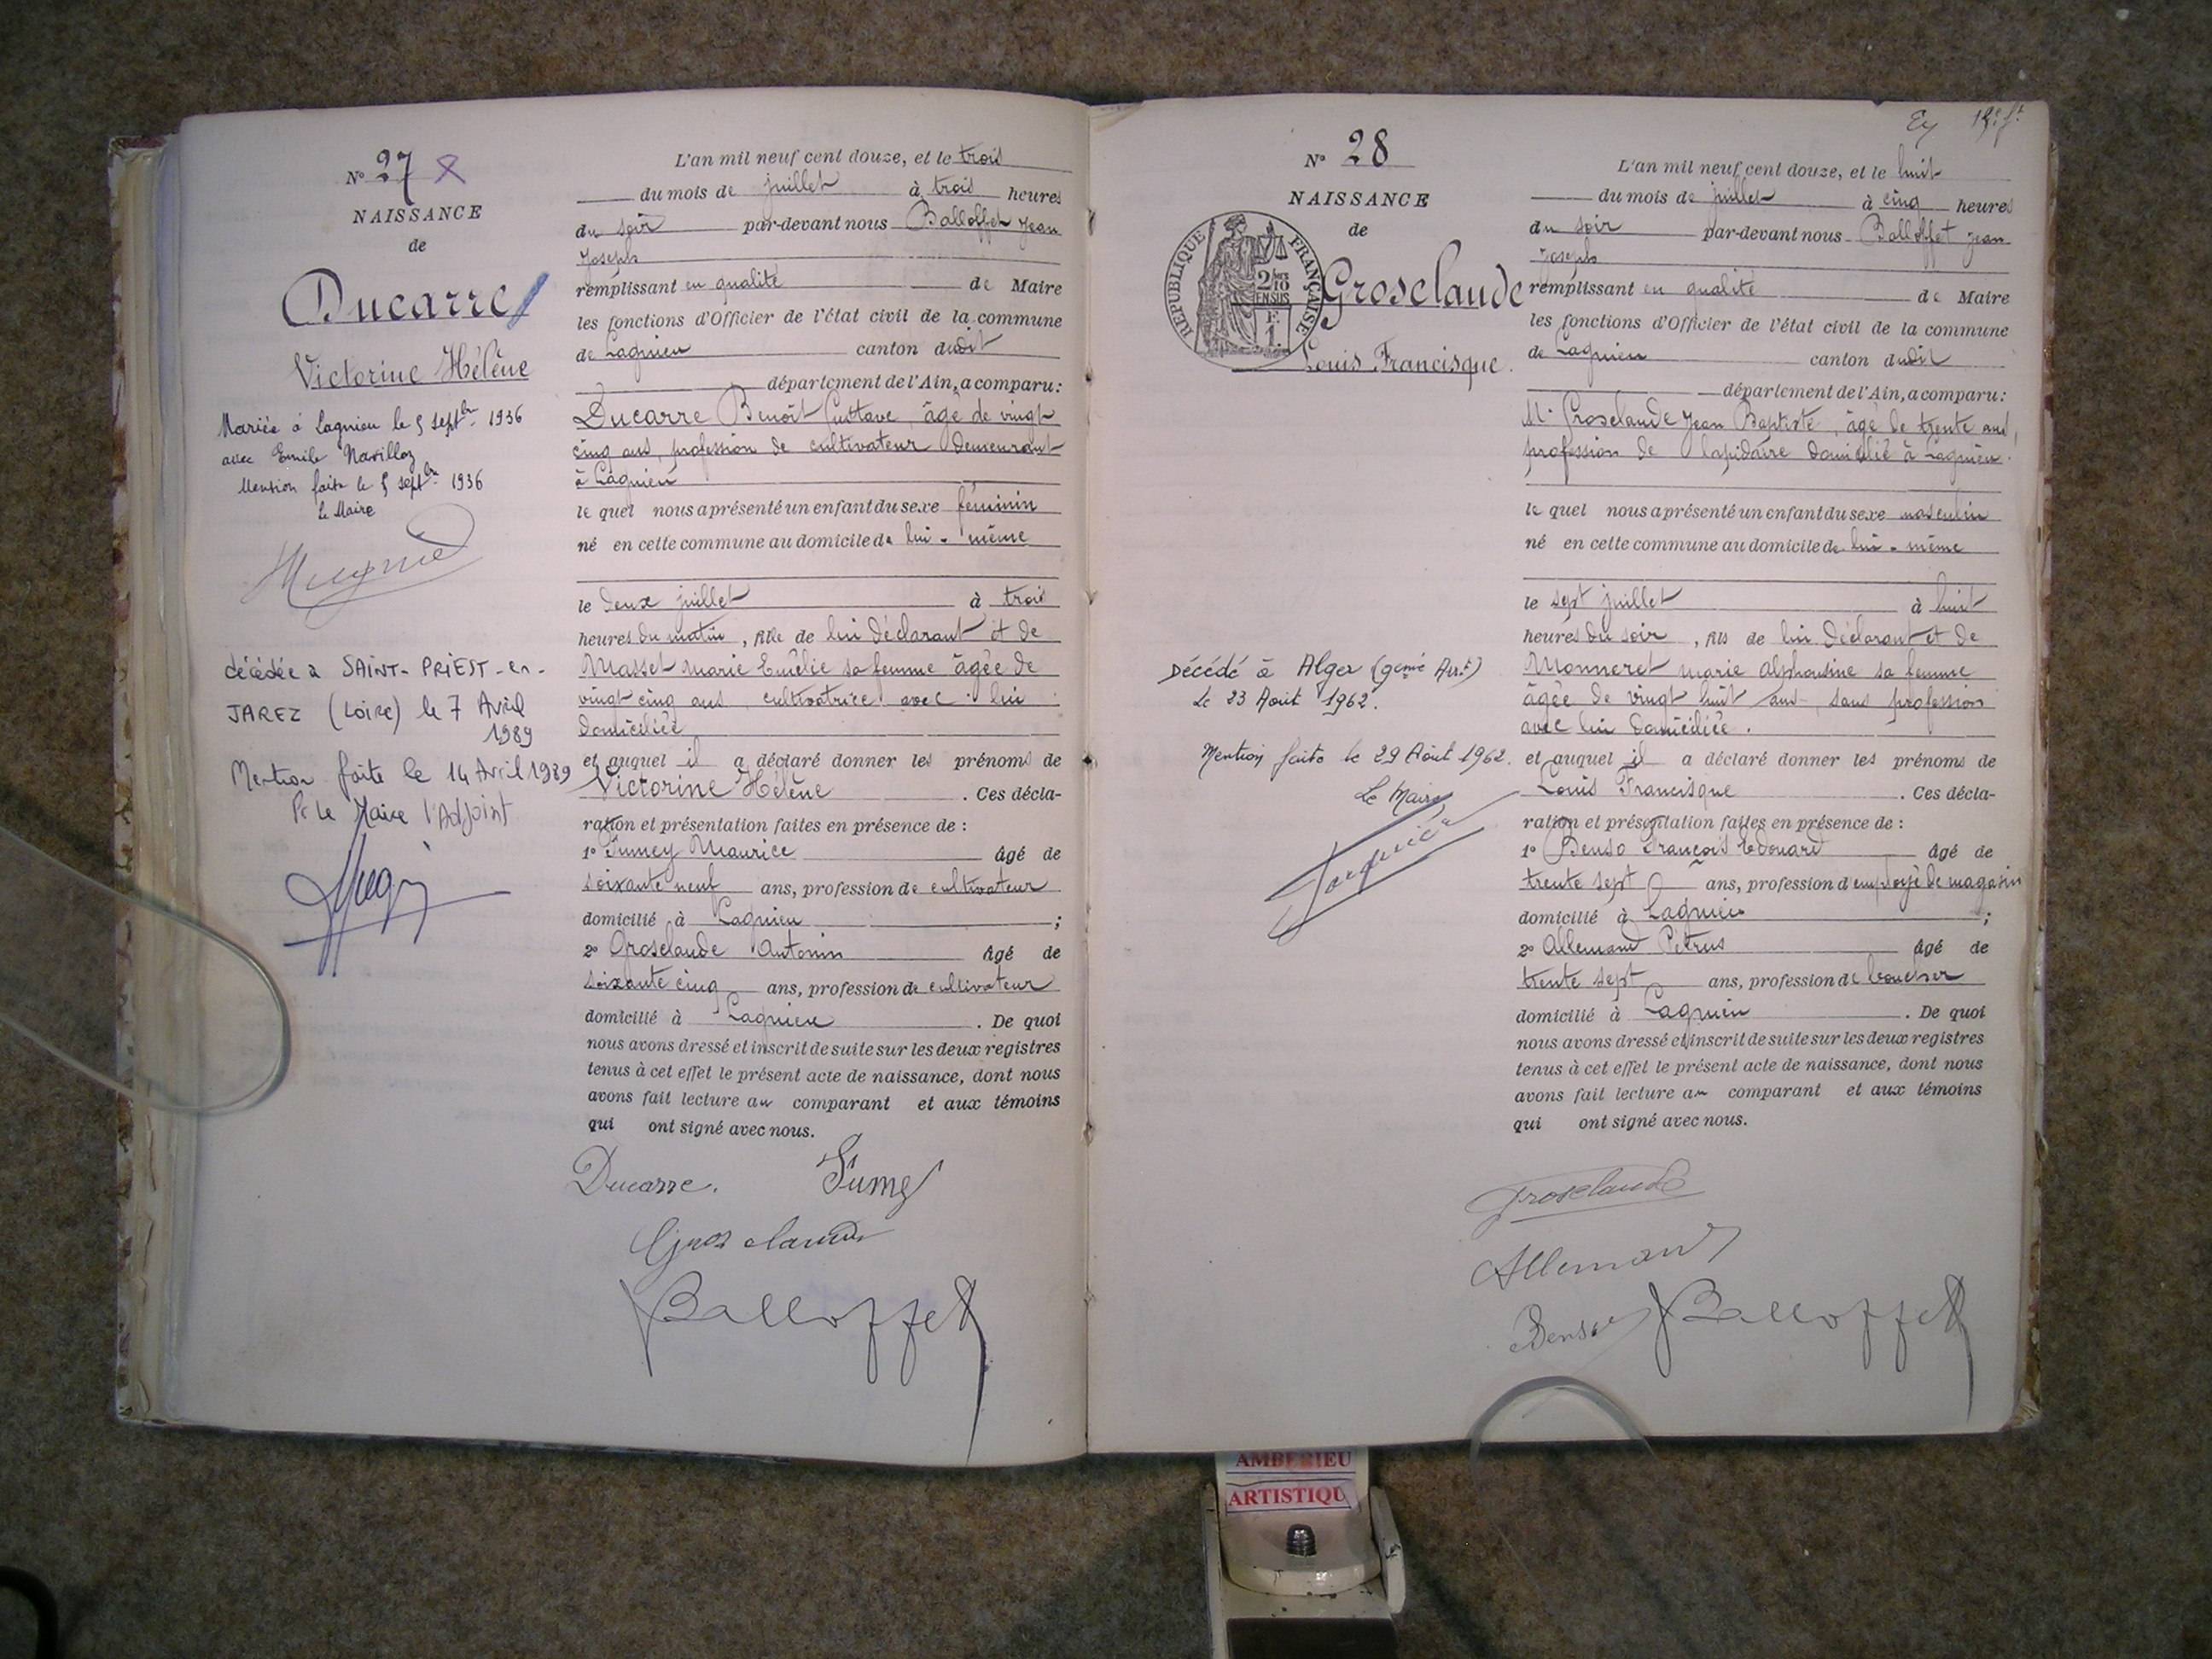 N° 27
NAISSANCE
de
Ducarre
Victorine Hélène
Mariée à Lagnieu le 5 septbre 1936
avec Emile Navilloz
Mention faite le 5 septbre 1936
le Maire
décédée a SAINT-PRIEST-en-
JAREZ (Loire) le 7 Avril
1989
Mention faite le 14 Avril 1989
Pr Le Maire l'Adjoint
L'an mil neuf cent douze, et le trois
du mois de juillet à trois heures
du soir par-devant nous Balloffet Jean
Joseph
remplissant en qualité de Maire
les fonctions d'Officier de l'état civil de la commune
de Lagnieu canton dudit
département de l'Ain, a comparu:
Ducarre Benoît Gustave, âgé de vingt
cinq ans, profession de cultivateur demeurant
à Lagnieu
le quel nous a présenté un enfant du sexe féminin
né en cette commune au domicile de lui-même
le deux juillet à trois
heures du matin, fille de lui déclarant et de
Masset marie Emélie sa femme âgée de
vingt cinq ans, cultivatrice avec lui
domiciliée
et auquel il a déclaré donner les prénoms de
Victorine Hélène. Ces décla-
ration et présentation faites en présence de :
1° Fumey Maurice âgé de
soixante neuf ans, profession de cultivateur
domicilié à Lagnieu ;
2° Groselaude Antonin âgé de
soixante cinq ans, profession de cultivateur
domicilié à Lagnieu. De quoi
nous avons dressé et inscrit de suite sur les deux registres
tenus à cet effet le présent acte de naissance, dont nous
avons fait lecture au comparant et aux témoins
qui ont signé avec nous.
Ducarre. Fumey
Groselaude
Balloffet
N° 28
NAISSANCE
de
REPUBLIQUE FRANÇAISE
2/10 EN SUS
F.
1.
Groselaude
Louis Francisque.
Décédé à Alger (9eme Arrt)
Le 23 Août 1962.
Mention faite le 29 Août 1962.
Le Maire
L'an mil neuf cent douze, et le huit
du mois de juillet à cinq heures
du soir par-devant nous Balloffet Jean
Joseph
remplissant en qualité de Maire
les fonctions d'Officier de l'état civil de la commune
de Lagnieu canton dudit
département de l'Ain, a comparu:
Mr Groselaude Jean Baptiste, âgé de trente ans,
profession de lapidaire domicilié à Lagnieu.
le quel nous a présenté un enfant du sexe masculin
né en cette commune au domicile de lui-même
le sept juillet à huit
heures du soir, fils de lui déclarant et de
Monneret marie alphonsine sa femme
âgée de vingt huit ans, sans profession
avec lui domiciliée.
et auquel il a déclaré donner les prénoms de
Louis Francisque. Ces décla-
ration et présentation faites en présence de :
1° Benso François Edouard âgé de
trente sept ans, profession d'employé de magasin
domicilié à Lagnieu ;
2° Allemand Pétrus âgé de
trente sept ans, profession de boucher
domicilié à Lagnieu. De quoi
nous avons dressé et inscrit de suite sur les deux registres
tenus à cet effet le présent acte de naissance, dont nous
avons fait lecture au comparant et aux témoins
qui ont signé avec nous.
Groselaude
Allemand
Benso Balloffet
AMBERIEU
ARTISTIQU